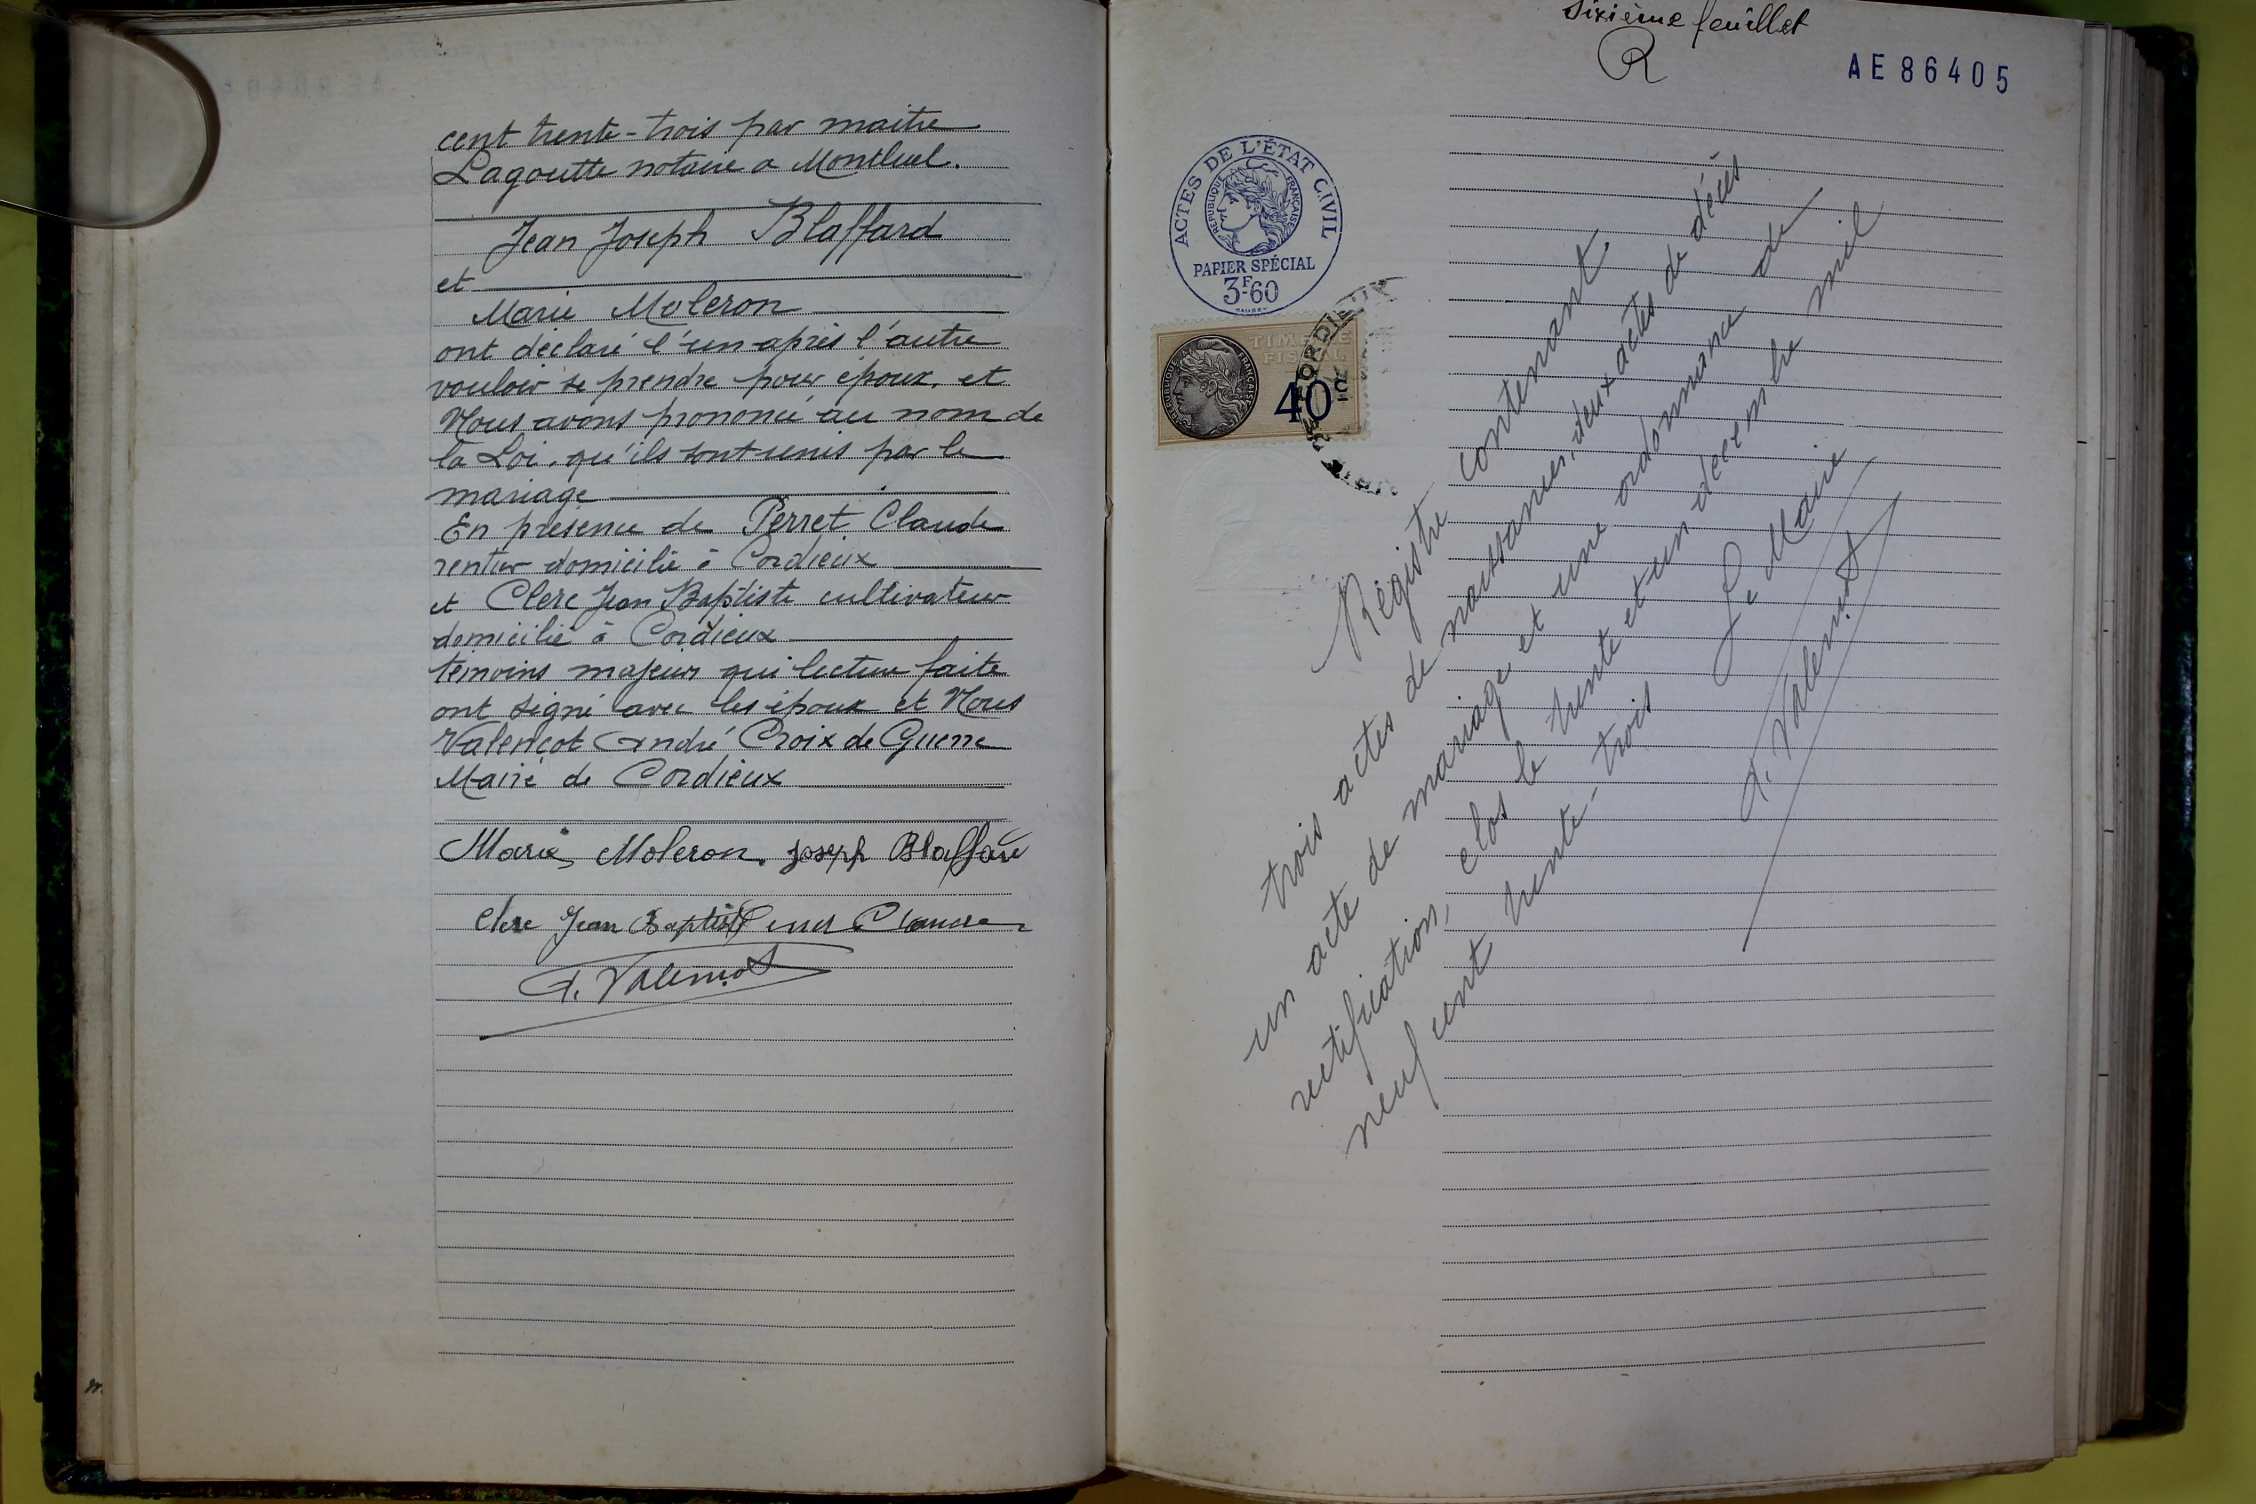 cent trente-trois par maitre
Lagoutte notaire a Montluel.
Jean Joseph Blaffard
et
Marie Moleron
ont déclaré l'un après l'autre
vouloir se prendre pour époux, et
Nous avons prononcé au nom de
la Loi. qu'ils sont unis par le
mariage
En présence de Perret Claude
rentier domicilié à Cordieux
et Clerc Jean Baptiste cultivateur
domicilié à Cordieux
témoins majeurs qui lecture faite
ont signé avec les époux et Nous
Valençot André Croix de Guerre
Maire de Cordieux
Marie Moleron. Joseph Blaffard
Clerc Jean Baptiste Claude
A. Valençot
Sixième feuillet
R
AE 86405
ACTES DE L'ÉTAT CIVIL
RÉPUBLIQUE FRANÇAISE
PAPIER SPÉCIAL
3F-60
TIMBRE
FISCAL
40c
RÉPUBLIQUE FRANÇAISE
CORDIEUX
Régistre contenant
trois actes de naissances, deux actes de décès
un acte de mariage et une ordonnance de
rectification, clos le trente et un décembre mil
neuf cent trente-trois
Le Maire
A. Valençot